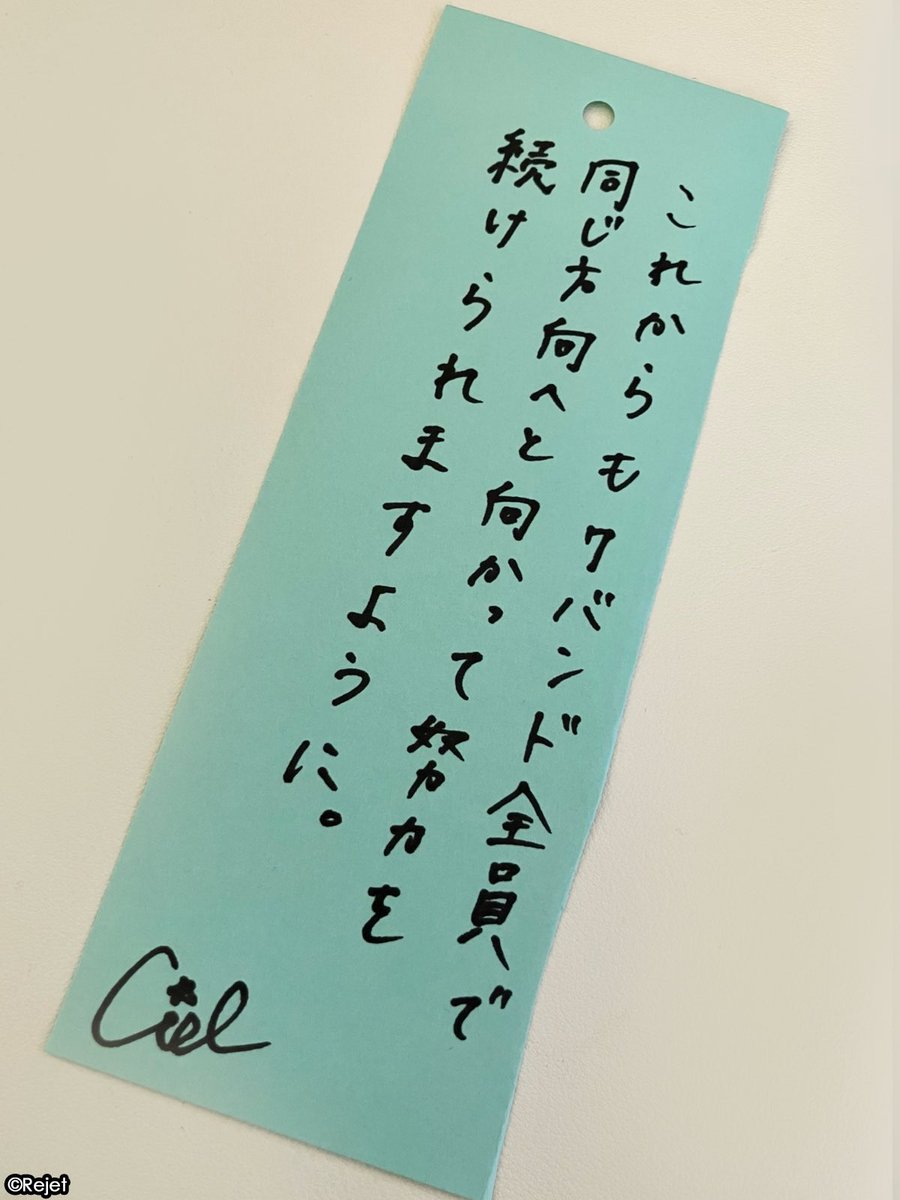 これからも7バンド全員で
同じ方向へと向かって努力を
続けられますように。
Ciel
©Rejet